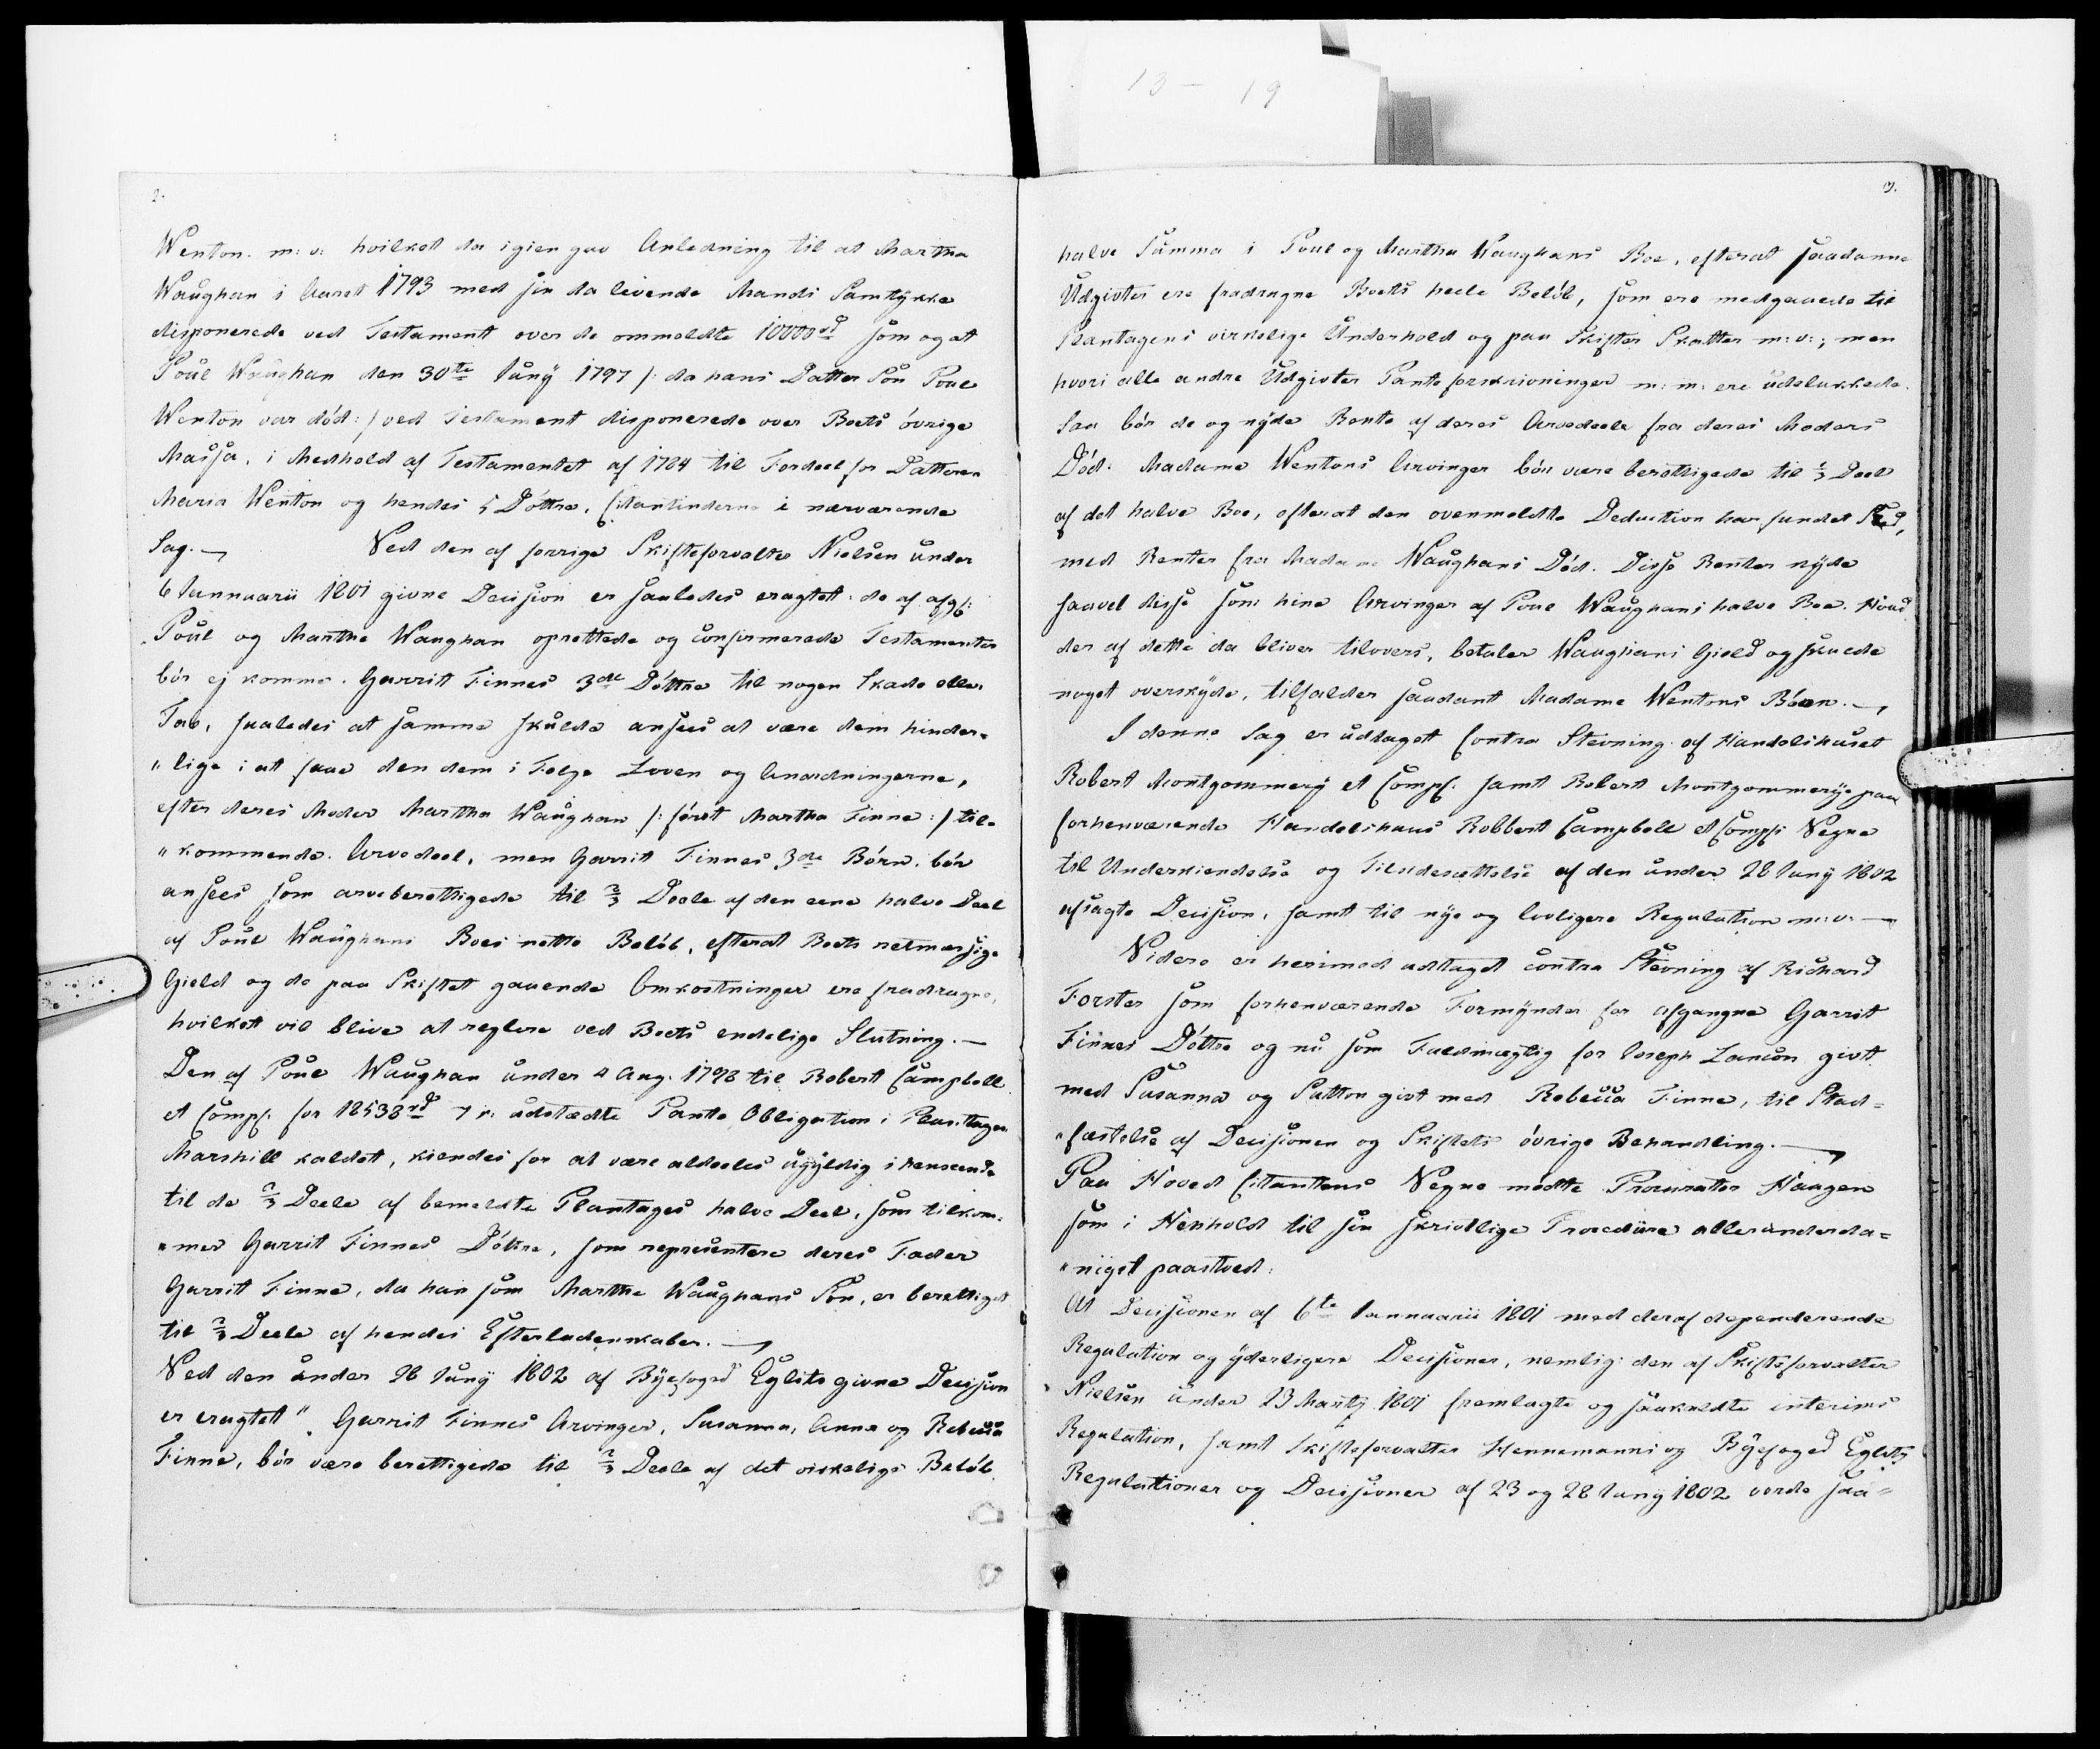 2.
Wenton m: v: hvilket da igien gav Anledning til at Martha
Waughan i Aaret 1793 med sin da levende Mands Samtykke
disponerede ved Testament over de ommeldte 10000 rd som og at
Poul Waughan den 30te Juny 1797 /: da hans Datter Søn Poul
Wenton var død :/ ved Testament disponerede over Boets øvrige
Massa, i Medhold af Testamentet af 1784 til Fordeel for Datteren
Maria Wenton og hendes 5 Døttre, Citantinderne i nærværende
Sag. —
Ved den af forrige Skifteforvalter Nielsen under
6 Januarii 1801 givne Decision er saaledes eragtet: de af afg:
Poul og Martha Waughan oprettede og confirmerede Testamenter
bør ej komme Garrit Finnes 3de Døttre til nogen Skade eller
Tab, saaledes at samme skulde ansees at være dem hinder-
"lige i at faae den dem i Følge Loven og Anordningerne,
efter deres Moder Martha Waughan /: først Martha Finne :/ til-
"kommende Arvedeel, men Garrit Finnes 3de Børn bør
ansees som arveberettigede til 2/3 Deele af den eene halve Deel
af Poul Waughans Boes netto Beløb, efterat Boets retmæssige
Gield og de paa Skiftet gaaende Omkostninger ere fradragne,
hvilket vil blive at reglere ved Boets endelige Slutning. —
Den af Poul Waughan under 4 Aug. 1798 til Robert Campbell
et Comp: for 18538 rd 7 r: udstædte Pante Obligation i Plantagen
Marshill kaldet, kiendes for at være aldeeles ugyldig i henseende
til de 2/3 Deele af bemeldte Plantages halve Deel, som tilkom-
"mer Garrit Finnes Døttre, som representere deres Fader
Garrit Finne, da han som Martha Waughans Søn, er berettiget
til 2/3 Deele af hendes Efterladenskaber. —
Ved den under 28 Juny 1802 af Byefoged Eglits givne Decision
er eragtet "Garrit Finnes Arvinger, Susanna, Anna og Rebecca
Finne, bør være berettigede til 2/3 Deele af det virkelige Beløb
3.
halve Summa i Poul og Martha Waughans Boe, efterat saadanne
Udgivter ere fradragne Boets heele Beløb, som ere medgaaede til
Plantagens virkelige Underhold og paa Skifter Skatter m: v:; men
hvori alle andre Udgivter Panteforskrivninger m: m: ere udelukkede.
Saa bør de og nyde Rente af deres Arvedeele fra deres Moders
Død. Madame Wentons Arvinger bør være berettigede til 1/3 Deel
af det halve Boe, efterat den ovenmeldte Deduction har fundet Sted,
med Renter fra Madame Waughans Død. Disse Renter nyde
saavel disse som hine Arvinger af Poul Waughans halve Boe. Hvad
der af dette da bliver tilovers, betaler Waughans Gield og skulde
noget overskyde, tilfalder saadant Madame Wentons Børn. —
I denne Sag er udtaget Contra Stevning af Handelshuset
Robert Montgommery et Comp: samt Robert Montgommerye paa
forhenværende Handelshuus Robbert Campbell et Comp: Vegne
til Underkiendelse og Tilsidesættelse af den under 28 Juny 1802
afsagte Decision, samt til nye og lovligere Regulation m: v: —
Videre er herimod udtaget contra Stevning af Richard
Forster som forhenværende Formynder for afgangne Garrit
Finnes Døttre og nu som Fuldmægtig for Joseph Lanson givt
med Susanna og Sutton givt med Rebecca Finne, til Stad-
"fæstelse af Decisionen og Skiftets øvrige Behandling. —
Paa Hoved Citantens Vegne mødte Procurator Haagen
som i Henhold til sin skriftlige Procedure allerunderda-
"nigst paastoed:
At Decisionen af 6te Januarii 1801 med deraf dependerende
Regulation og yderligere Decisioner, nemlig: den af Skifteforvalter
Nielsen under 23 Martz 1801 fremlagte og saakaldte interims
Regulation, samt Skifteforvalter Hennemanns og Byefoged Eglits
Regulationer og Decisioner af 23 og 28 Juny 1802 vorde saa-
13 - 19